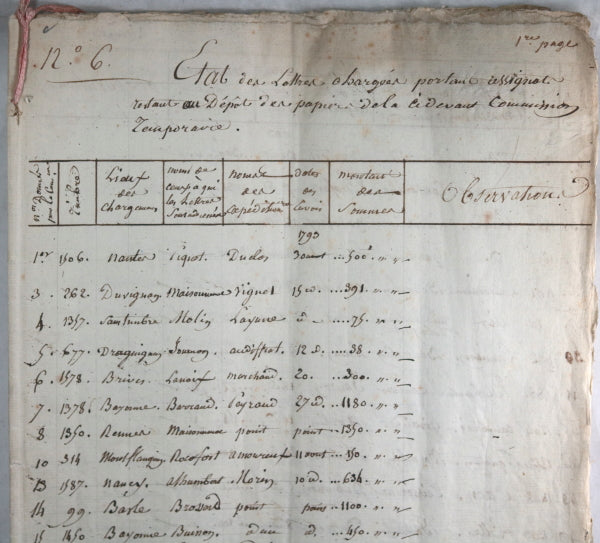 N.o 6.
1.re page
Etat des Lettres chargées portant assignats
restant au Dépôt des papiers de la ci devant Commission
Temporaire.
n.os Timbre Lieux des chargemens noms de ceux à qui les Lettres sont adressées noms des Expéditeurs dates des Envois montant des Sommes Observations
1793
1er 1506. nantes Duclos 3 aout ... 500.# " "
3. 262. Duvignau Maisonneuve Vignol 15 d. ... 391. " "
4. 1357. Molin d ... 75. " "
5. 677. Draguignan Journon audiffret 12 d. ... 38. " "
6. 1578. Brives marchand 20. ... 300. " "
7. 1378. Bayonne Barraud Peyraud 27 d. ... 1180. " "
8 1350. Rennes Maisonneuve point point ... 1350. " "
10 314 Montflanquin Rochefort amoureux 11 aout ... 150. " "
13 1587. nancy alhumbat Morin 10 d. ... 634. " "
14 99. Basle Brossard point point ... 1100. " "
15 1450 Bayonne Buisson d. ... 450. " "